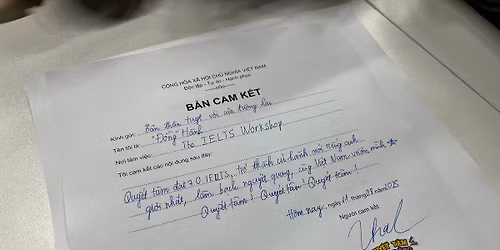 CỘNG HÒA XÃ HỘI CHỦ NGHĨA VIỆT NAM
Độc lập - Tự do - Hạnh phúc
BẢN CAM KẾT
Kính gửi: Bản thân tuyệt vời của tương lai
Tên tôi là: Đồng Hành
Nơi làm việc: The IELTS Workshop
Tôi cam kết các nội dung sau đây:
Quyết tâm đạt 7.0 IELTS, trở thành
giỏi nhất, làm bách nguyệt quang, cùng Việt Nam vươn mình
Quyết tâm! Quyết tâm! Quyết tâm!
Hôm nay, ngày 11 tháng 08 năm 2025
Người cam kết